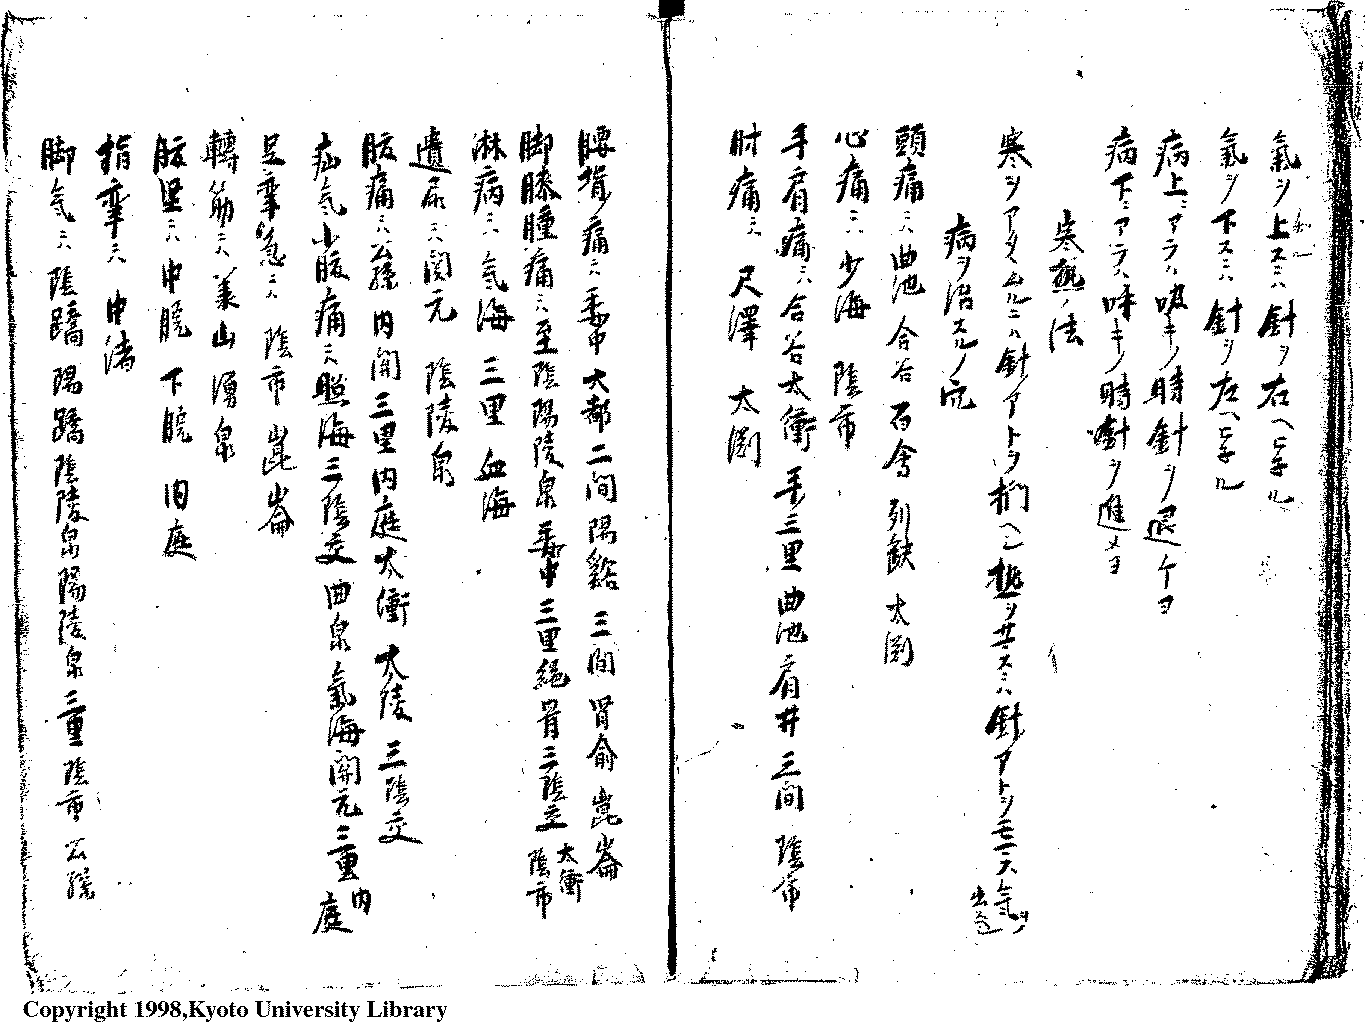 氣ヲ上スニハ針ヲ右ヘヒ子ル
氣ヲ下スニハ針ヲ左ヘヒ子ル
病上ニアラハ吸キノ時針ヲ退ケヨ
病下ニアラハ呼キノ時針ヲ進メヨ
寒熱ノ法
寒ヲアタムルニハ針アトヲ押ヘシ熱ヲサスニハ針アトヲモニス氣ヲ
病ヲ治スルノ穴
頭痛ニハ曲池 合谷 百會 列缺 太渕
心痛ニハ少海 陰市
手肩痛ニハ合谷太衝 手三里 曲池肩井 三間 陰市
肘痛ニハ 尺澤 太渕
腰 痛ニハ委中 大都 二間 陽谿 三間 胃俞 崑崙
脚膝腫痛ニハ至陰陽陵泉委中三里絕骨三陰交 太衝 陰市
淋病ニハ氣海 三里 血海
遺尿ニハ関元 陰陵泉
腹痛ニハ公孫 内関三里内庭太衝 大陵 三陰交
疝氣小腹痛ニハ照海三陰交 曲泉 氣海関元三里内庭
足攣急ニハ陰市 崑崙
轉筋ニハ 山湧泉
腹堅ニハ中脘 下脘 内庭
指攣ニハ中渚
脚氣ニハ陰蹻 陽蹻 陰陵泉陽陵泉三里 陰市 公孫
Copyright 1998,Kyoto University Library